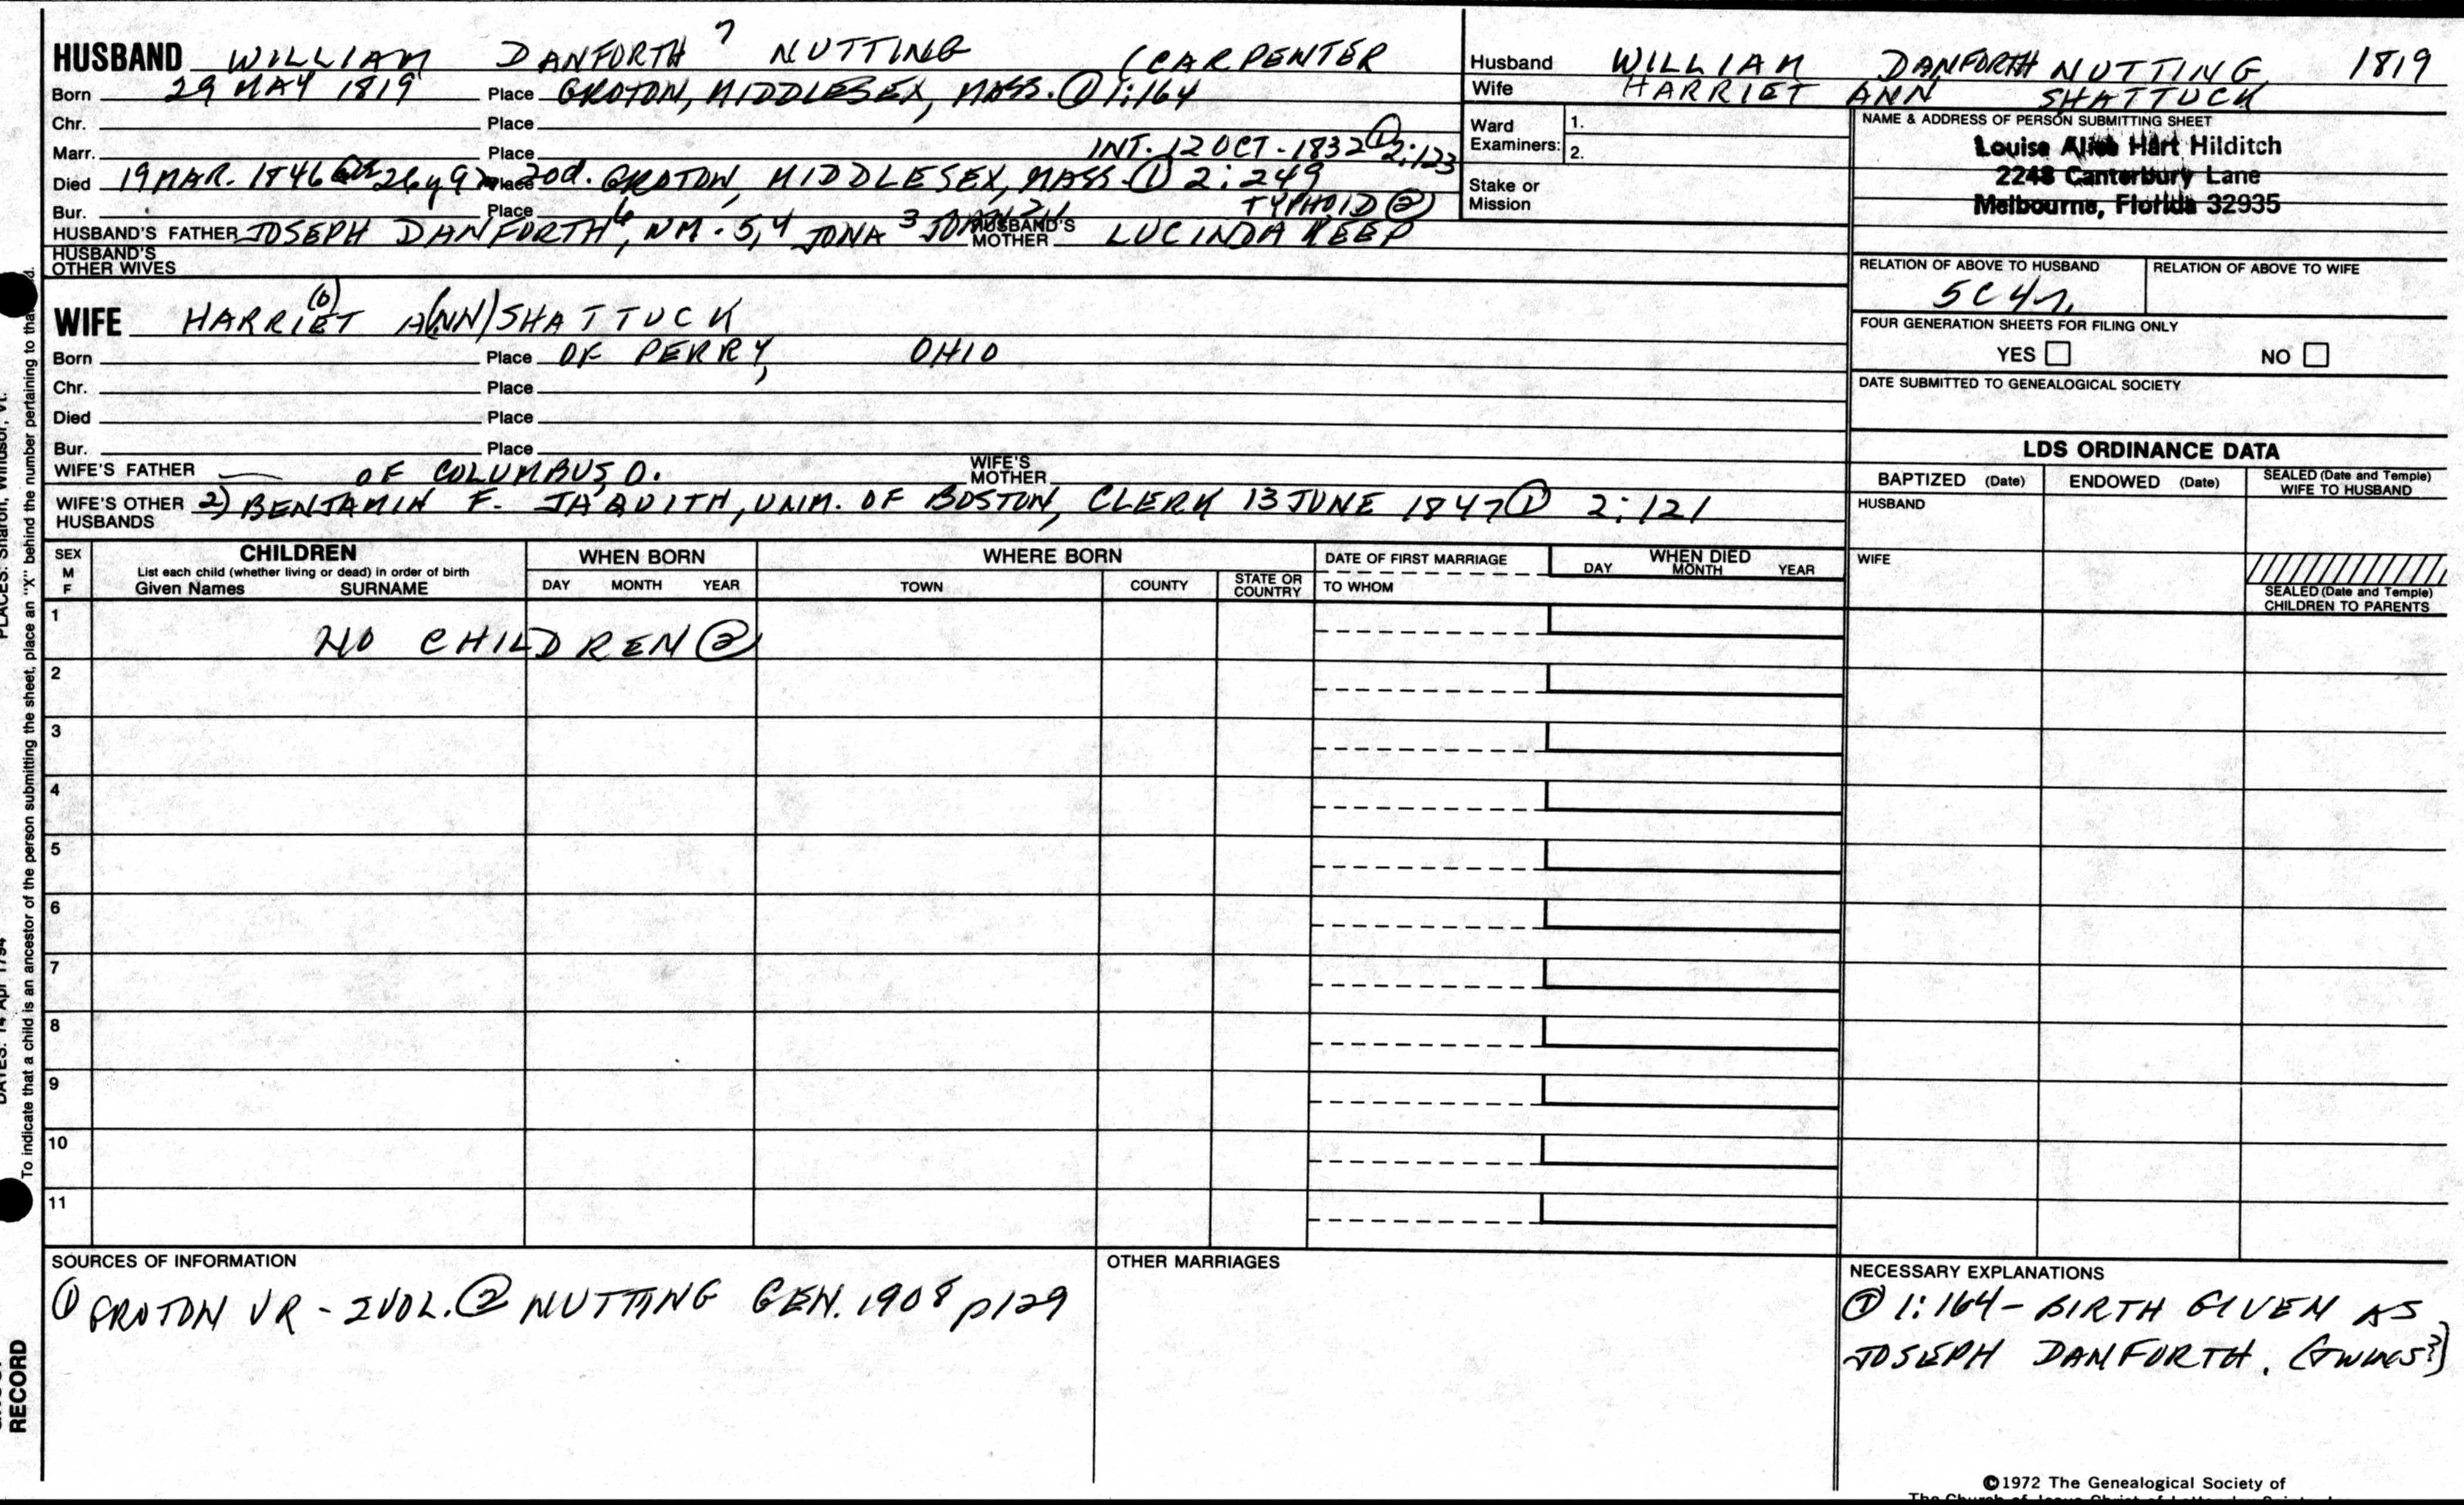 HUSBAND WILLIAM DANFORTH 7 NUTTING (CARPENTER
Born 29 MAY 1819 Place GROTON, MIDDLESEX, MASS. ① 1:164
Chr. Place
Marr. Place INT. 12 OCT - 1832 ① 2:123
Died 19 MAR. 1846 26y 9 Place 20d. GROTON, MIDDLESEX, MASS. ① 2:249
Bur. Place TYPHOID ②
HUSBAND'S FATHER JOSEPH DANFORTH 6, NM. 5,4 JONA 3 HUSBAND'S MOTHER LUCINDA KEEP
HUSBAND'S OTHER WIVES
WIFE HARRIET (6) A(NN) SHATTUCK
Born Place OF PERRY, OHIO
Chr. Place
Died Place
Bur. Place
WIFE'S FATHER — OF COLUMBUS, O. WIFE'S MOTHER
WIFE'S OTHER HUSBANDS 2) BENJAMIN F. JAQUITH, UNM. OF BOSTON, CLERK 13 JUNE 1847 ① 2:121
Husband WILLIAM DANFORTH NUTTING 1819
Wife HARRIET ANN SHATTUCK
Ward Examiners: 1.
2.
Stake or Mission
NAME & ADDRESS OF PERSON SUBMITTING SHEET
Louise Alice Hart Hilditch
2248 Canterbury Lane
Melbourne, Florida 32935
RELATION OF ABOVE TO HUSBAND RELATION OF ABOVE TO WIFE
5C4r.
FOUR GENERATION SHEETS FOR FILING ONLY
YES NO
DATE SUBMITTED TO GENEALOGICAL SOCIETY
LDS ORDINANCE DATA
BAPTIZED (Date) ENDOWED (Date) SEALED (Date and Temple) WIFE TO HUSBAND
HUSBAND
WIFE
SEALED (Date and Temple) CHILDREN TO PARENTS
SEX M F
CHILDREN
List each child (whether living or dead) in order of birth
Given Names SURNAME
WHEN BORN
DAY MONTH YEAR
WHERE BORN
TOWN COUNTY STATE OR COUNTRY
DATE OF FIRST MARRIAGE
TO WHOM
WHEN DIED
DAY MONTH YEAR
1 NO CHILDREN ②
2
3
4
5
6
7
8
9
10
11
SOURCES OF INFORMATION
① GROTON VR - 2 VOL. ② NUTTING GEN. 1908 p129
OTHER MARRIAGES
NECESSARY EXPLANATIONS
① 1:164 - BIRTH GIVEN AS
JOSEPH DANFORTH. (TWINS?)
©1972 The Genealogical Society of
PLACES: Sharon, Windsor, Vt.
DATES: 14 Apr 1794
To indicate that a child is an ancestor of the person submitting the sheet, place an "X" behind the number pertaining to that
RECORD